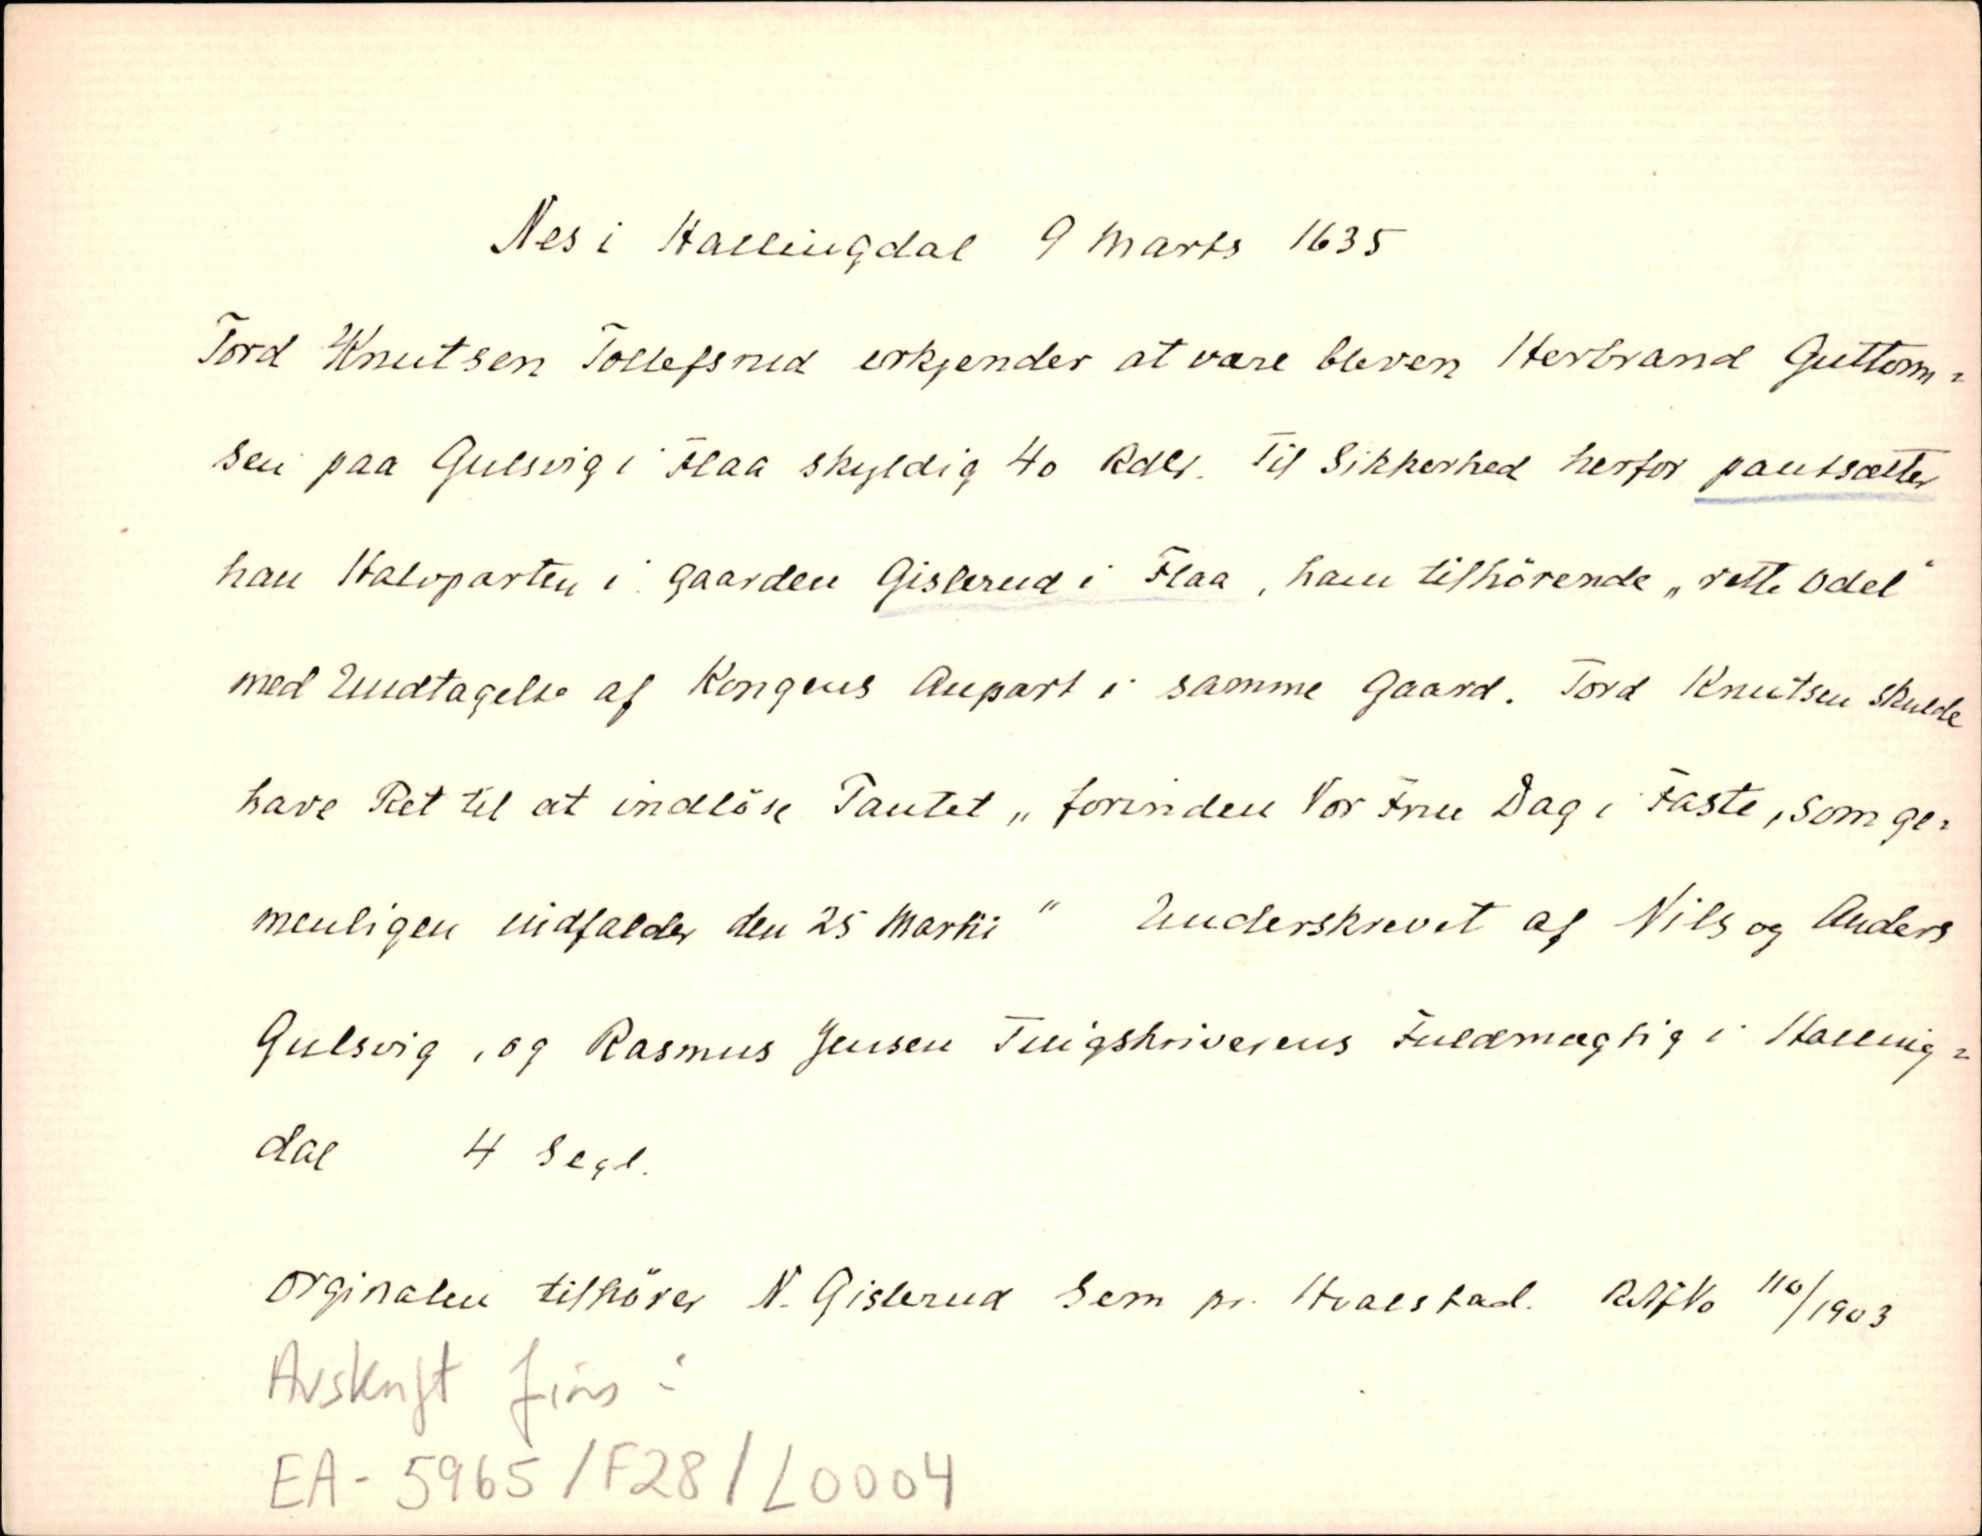 Nes i Hallingdal 9 Marts 1635
Tord Knutsen Tollefsrud erkjender at være bleven Herbrand Guttorm=
sen paa Gulsvig i Flaa skyldig 40 Rdlr. Til Sikkerhed herfor pantsætter
han Halvparten i Gaarden Gislerud i Flaa, ham tilhörende „rette Odel“
med Undtagelse af Kongens Anpart i samme Gaard. Tord Knutsen skulde
have Ret til at indlöse Pantet „forinden Vor Frue Dag i Faste, som ge=
menligen indfalder den 25 Martii“ Underskrevet af Nils og Anders
Gulsvig, og Rasmus Jensen Tingskriverens Fuldmægtig i Halling=
dal 4 Segl.
Orginalen tilhörer N. Gislerud Sem pr. Hvalstad. 110/1903
Avskrift fins i
EA-5965/F28/L0004